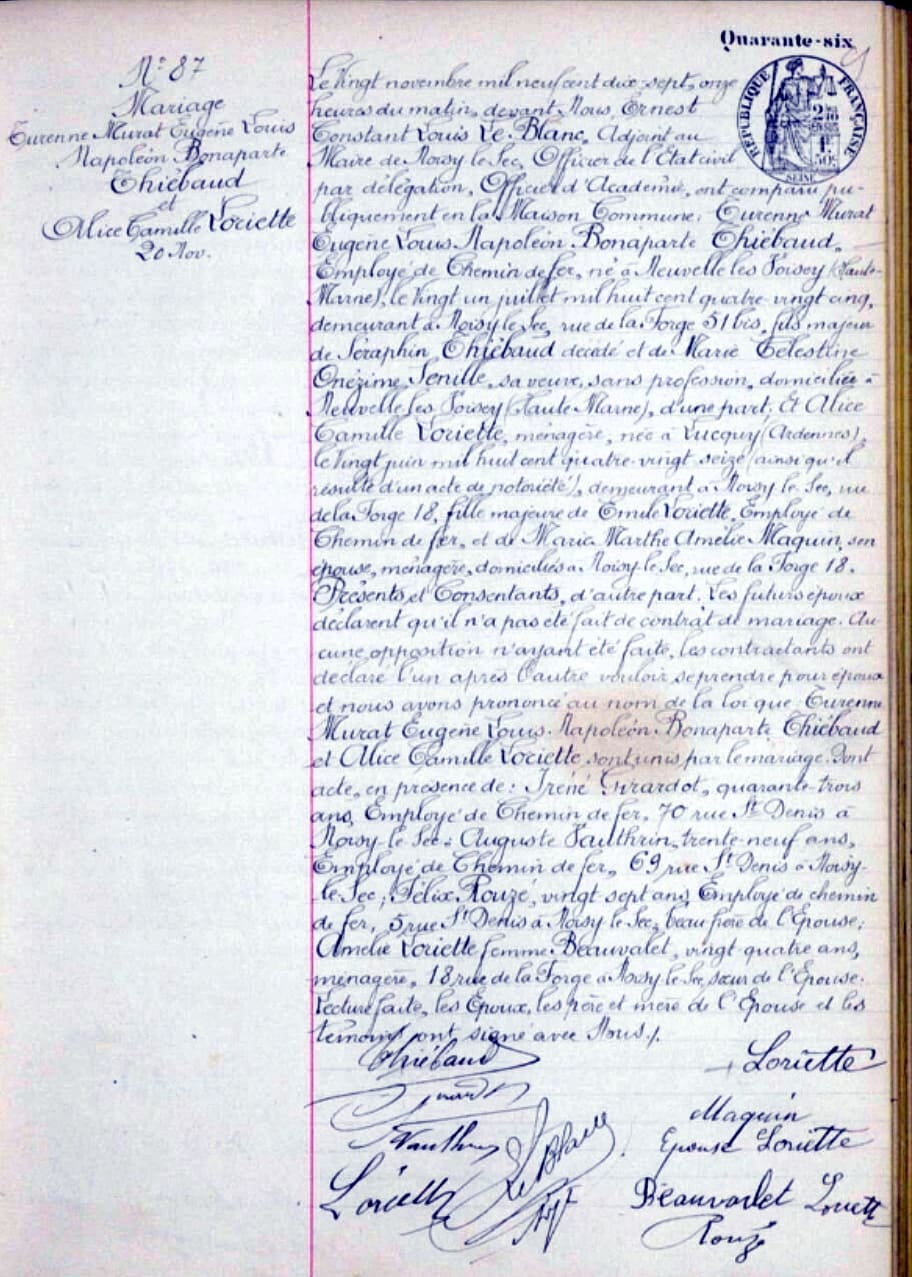 Quarante-six
N° 87
Mariage
Turenne Murat Eugène Louis
Napoléon Bonaparte
Thiébaud
et
Alice Camille Loriette
20 Nov.
RÉPUBLIQUE FRANÇAISE
SEINE
Le Vingt novembre mil neuf cent dix-sept, onze
heures du matin, devant Nous, Ernest
Constant Louis Le Blanc, Adjoint au
Maire de Noisy le Sec, Officier de l'Etat civil
par délégation, Officier d'Académie, ont comparu pu-
bliquement en la Maison Commune: Turenne Murat
Eugène Louis Napoléon Bonaparte Thiébaud,
Employé de Chemin de fer, né à Neuvelle les Voisey (Haute-
Marne), le Vingt un juillet mil huit cent quatre-vingt cinq,
demeurant à Noisy le Sec, rue de la Forge 51 bis, fils majeur
de Séraphin Thiébaud décédé et de Marie Célestine
Onézime Senille, sa veuve, sans profession, domiciliée à
Neuvelle les Voisey (Haute Marne), d'une part; Et Alice
Camille Loriette, ménagère, née à Lucquy (Ardennes),
le Vingt juin mil huit cent quatre-vingt seize (ainsi qu'il
résulte d'un acte de notoriété), demeurant à Noisy le Sec, rue
de la Forge 18, fille majeure de Emile Loriette, Employé de
Chemin de fer, et de Marie Marthe Amélie Maquin, son
épouse, ménagère, domiciliés à Noisy-le-Sec, rue de la Forge 18.
Présents et Consentants, d'autre part. Les futurs époux
déclarent qu'il n'a pas été fait de contrat de mariage. Au-
cune opposition n'ayant été faite, les contractants ont
déclaré l'un après l'autre vouloir se prendre pour époux
et nous avons prononcé au nom de la loi que Turenne
Murat Eugène Louis Napoléon Bonaparte Thiébaud
et Alice Camille Loriette sont unis par le mariage. Dont
acte, en présence de: Iréné Girardot, quarante-trois
ans, Employé de Chemin de fer, 70 rue St Denis à
Noisy-le-Sec; Auguste Vauthrin, trente-neuf ans,
Employé de Chemin de fer, 69 rue St Denis à Noisy-
le-Sec; Félix Rouzé, vingt sept ans, Employé de chemin
de fer, 5 rue St Denis à Noisy le Sec, beau frère de l'Epouse;
Amélie Loriette femme Beauvalet, vingt-quatre ans,
ménagère, 18 rue de la Forge à Noisy-le-Sec, sœur de l'Epouse.
Lecture faite, les Epoux, les père et mère de l'Epouse et les
témoins ont signé avec Nous./.
Thiébaud Loriette
Girardot
Maquin
Vauthrin Le Blanc Epouse Loriette
Loriette Beauvalet Loriette
Rouzé